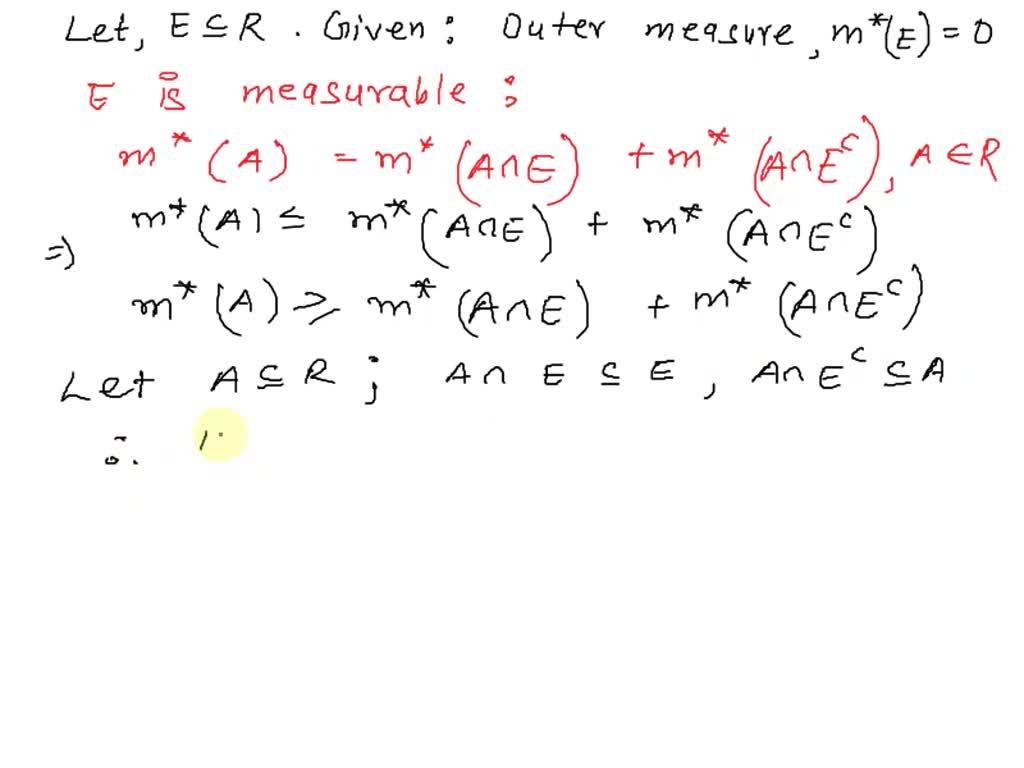 Let, E ⊆ R. Given: Outer measure, m*(E) = 0
E is measurable:
m*(A) = m*(A∩E) + m*(A∩E^c), A ∈ R
m*(A) ≤ m*(A∩E) + m*(A∩E^c)
⇒
m*(A) ≥ m*(A∩E) + m*(A∩E^c)
Let A ⊆ R; A∩E ⊆ E, A∩E^c ⊆ A
∴